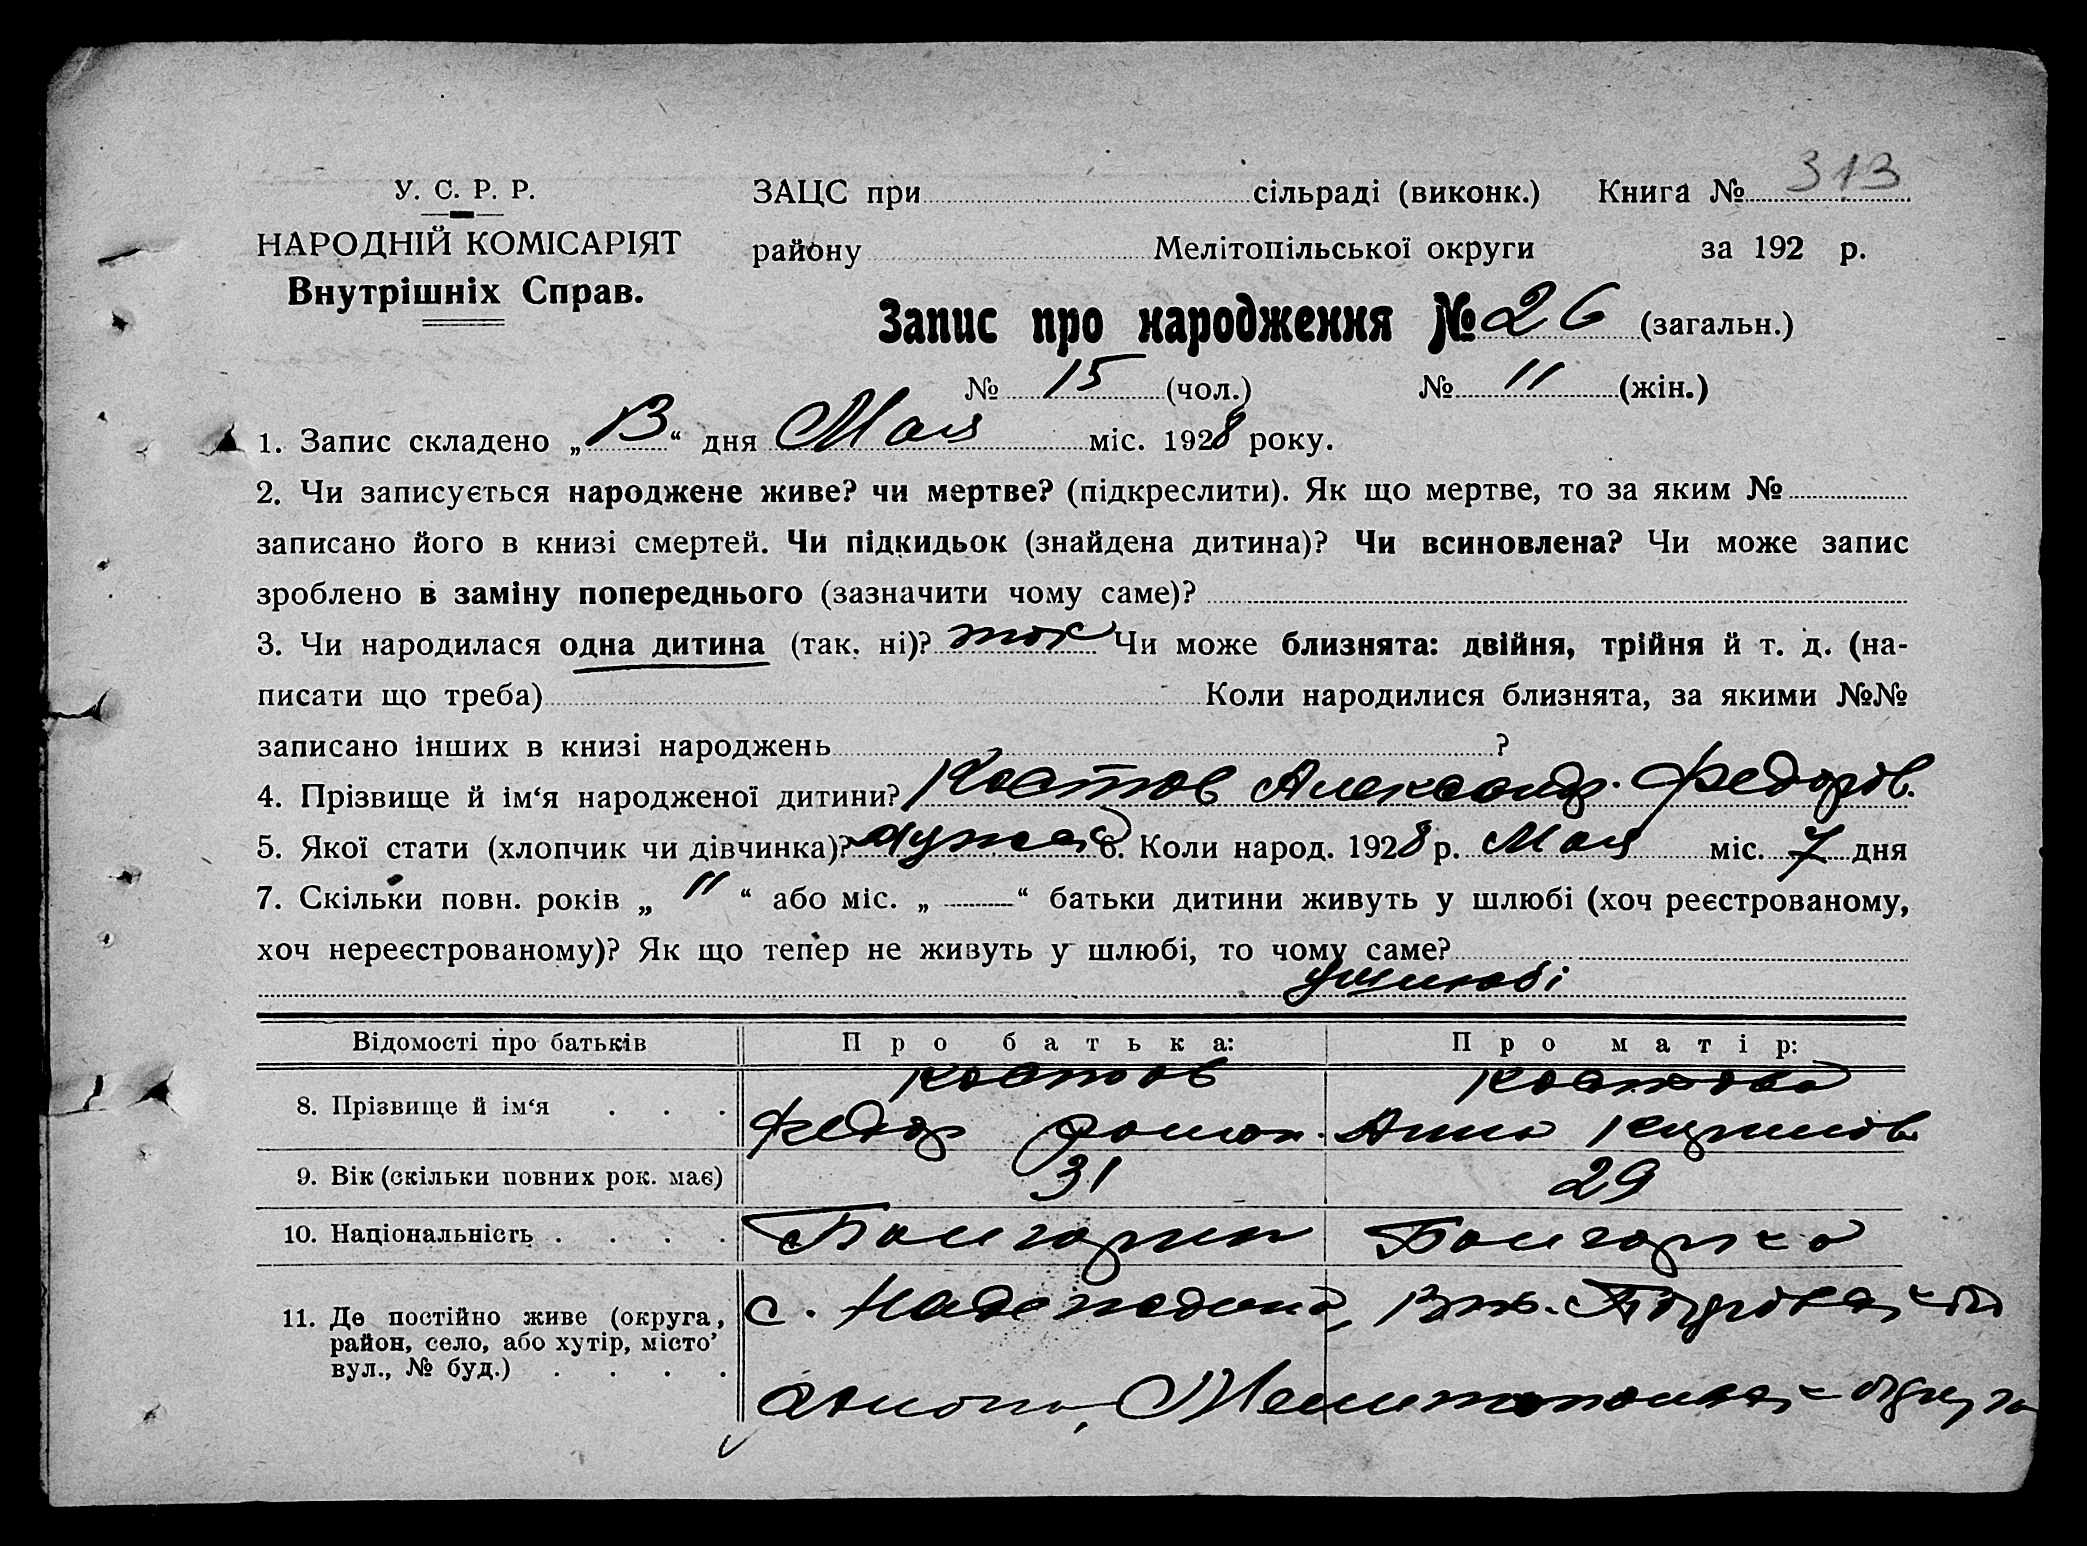 У. С. Р. Р.
НАРОДНІЙ КОМІСАРІЯТ
Внутрішніх Справ.
ЗАЦС при сільраді (виконк.) Книга № 313
району Мелітопільської округи за 192 р.
Запис про народження № 26 (загальн.)
№ 15 (чол.) № 11 (жін.)
1. Запис складено „ “ дня Мая міс. 1928 року.
2. Чи записується народжене живе? чи мертве? (підкреслити). Як що мертве, то за яким №
записано його в книзі смертей. Чи підкидьок (знайдена дитина)? Чи всиновлена? Чи може запис
зроблено в заміну попереднього (зазначити чому саме)?
3. Чи народилася одна дитина (так. ні)? так Чи може близнята: двійня, трійня й т. д. (на-
писати що треба) Коли народилися близнята, за якими №№
записано інших в книзі народжень ?
4. Прізвище й ім‘я народженої дитини? Костов Александр. Федоров.
5. Якої стати (хлопчик чи дівчинка)? 6. Коли народ. 1928 р. Мая міс. 7 дня
7. Скільки повн. років „ 11 “ або міс. „ — “ батьки дитини живуть у шлюбі (хоч реєстрованому,
хоч нереєстрованому)? Як що тепер не живуть у шлюбі, то чому саме?
у шлюбі
Відомості про батьків Про батька: Про матір:
Костов Костова
8. Прізвище й ім‘я . . .
Федор Анна
9. Вік (скільки повних рок. має) 31 29
10. Національність . . . . Болгарин Болгарка
11. Де постійно живе (округа, район, село, або хутір, місто’ вул., № буд.) . . . .
с.
Мелитопольск